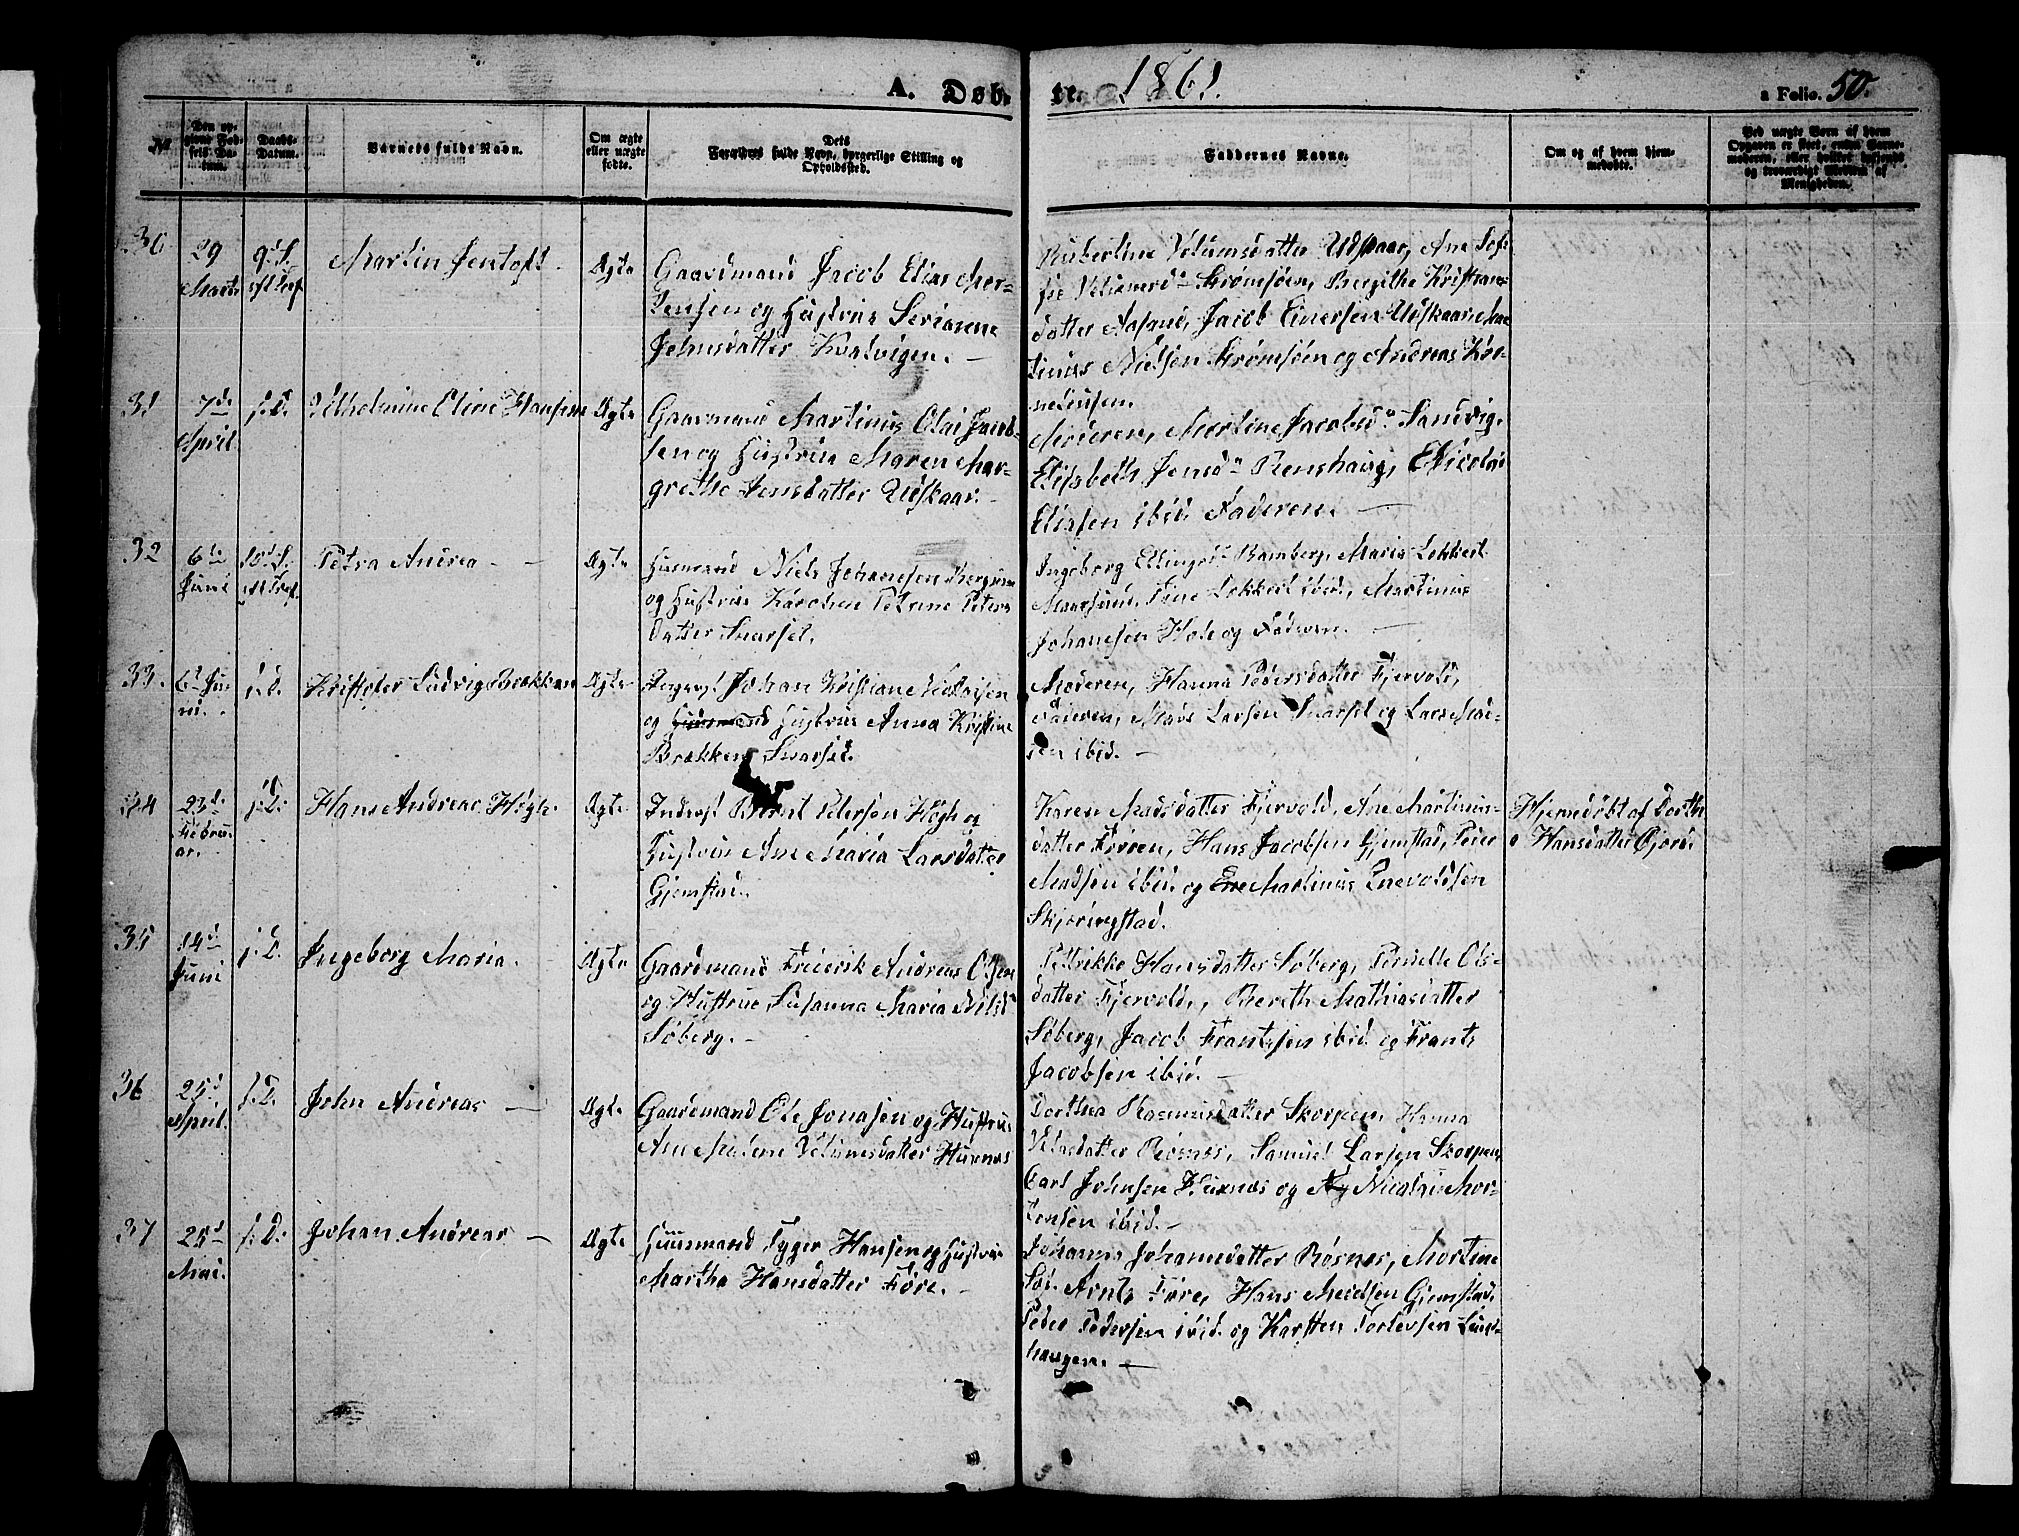 A. Døb-
te. 1861.
a Folio. 50.
No
Den op-
givne Fød-
sels Da-
tum.
Daabs-
Datum.
Barnets fulde Navn.
Om ægte
eller uægte
fødte.
Dets
Forældres fulde Navn, borgerlige Stilling og
Opholdssted.
Faddernes Navne.
Om og af hvem hjem-
medøbt.
Ved uægte Born af hvem
Opgaven er skeet, enten Barne-
moderen, eller hvilket bosiddende
og troværdigt Medlem af
Menigheden.
30
29
Marts
9d S.
Martin Jentoft
Ægte
Gaardmand Jacob Elias Mor-
tensen og Hustrue Serianne
Johnsdatter Kvalvigen. —
Rubertine Velumsdatter Udskaar, Ane Sof-
fie Strømsøen, Bergithe Kristians-
datter Aasand, Jacob Einersen Udskaar, Mar-
tinus Nielsen Strømsøen og Andreas Kor-
neliusen.
31
7de
April
s. D.
Vilhelmine Eline Hansine
Ægte
Gaardmand Martinus Olai Jacob-
sen og Hustrue Maren Mar-
grethe Jensdatter Udskaar. —
Moderen, Martine Jacobsdr Sandvig,
Elisbeth Jensdr Renshaug, Nicolai
Eliassen ibid. Faderen. —
32
6te
Juni
10d S.
Petra Andrea —
Ægte
Husmand Niels Johansen
og Hustrue Karoline Petrine Peters
datter Snarset.
Ingeborg Ellingsdr Ramberg, Maria Lokkert
Maarsund, Tine Lokkert ibid, Martinus
Johansen Hole og Faderen. —
33.
6te Ju-
ni.
s. D.
Kristofer Ludvig Brækkan
Ægte
Johan Kristian Nicolaisen
og Huusmand Hustrue Anna Kristine
Brækken Snarset.
Moderen, Hanna Pedersdatter Fjervold,
Faderen, Mads Larsen Snarset og Lars Mad-
sen ibid. —
34
23de
Februar-
ar.
s. D.
Hans Andreas Høgh.
Ægte
Inderst Bernt Petersen Høgh og
Hustrue Ane Maria Larsdatter
Gjemstad.
Karen Madsdatter Fjervold, Ane Martinus-
datter Føreen, Hans Jacobsen Gjemstad, Peder
Madsen ibid. og Martinus Enevoldsen
Skjeringstad.
Hjemedøbt af Dorth
e Hansdatter Gjerd.
35
14d
Juni
s. D.
Ingeborg Maria.
Ægte
Gaardmand Frederik Andreas Olsen
og Hustrue Susanna Maria Nilsdr
Søberg. —
Petrikke Hansdatter Søberg, Pernille Ols-
datter Fjervold, Bereth Mathiasdatter
Søberg, Jacob Frantssen ibid og Frants
Jacobsen ibid. —
36
25d
April.
s. D.
John Andreas —
Ægte
Gaardmand Ole Jonasen og Hustrue
Ane Malene Velumsdatter Huxnæs
Dorthea Rasmusdatter Skorpen, Hanna
Velasdatter Røsnæs, Samuel Larsen Skorpen,
Carl Johnsen Huxnæs og Ny Nicolai Mor-
tensen ibid. —
37
25d
Mai.
s. D.
Johan Andreas —
Ægte
Huusmand Tyger Hansen og Hustrue
Martha Hansdatter Føre. —
Johanna Johannesdatter Røsnæs, Mortine
Arnts Føre, Hans Madsen Gjemstad,
Peder Pedersen ibid. og Karsten Torlevsen Lund-
haugen. —